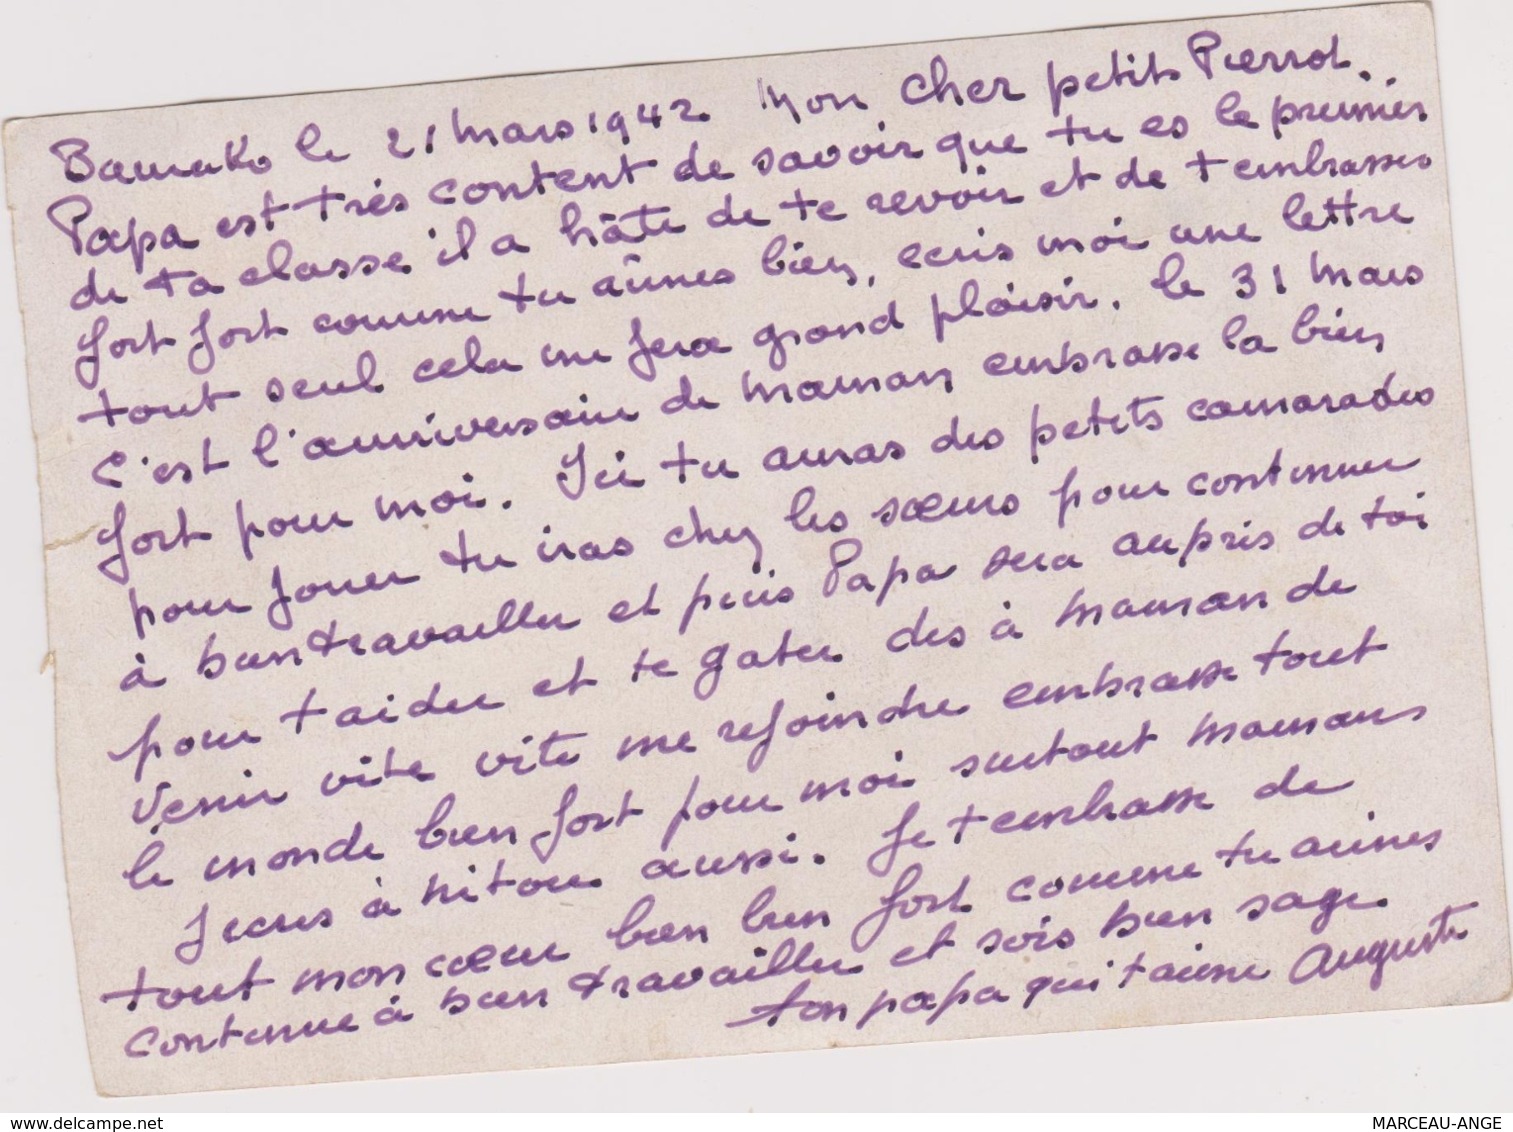 Bamako le 21 Mars 1942 Mon cher petit Pierrot.
Papa est très content de savoir que tu es le premier
de ta classe il a hâte de te revoir et de t embrasser
fort fort comme tu aimes bien, ecris moi une lettre
tout seul cela me fera grand plaisir. le 31 Mars
C'est l'anniversaire de Maman embrasse la bien
fort pour moi. Ici tu auras des petits camarades
pour jouer tu iras chez les sœurs pour continuer
à bien travailler et puis Papa sera auprès de toi
pour t aider et te gater dis à Maman de
Venir vite vite me rejoindre embrasse tout
le monde bien fort pour moi surtout Maman
J ecris à aussi. Je t embrasse de
tout mon cœur bien bien fort comme tu aimes
continue à bien travailler et sois bien sage
ton papa qui t aime Auguste
delcampe.net
MARCEAU-ANGE